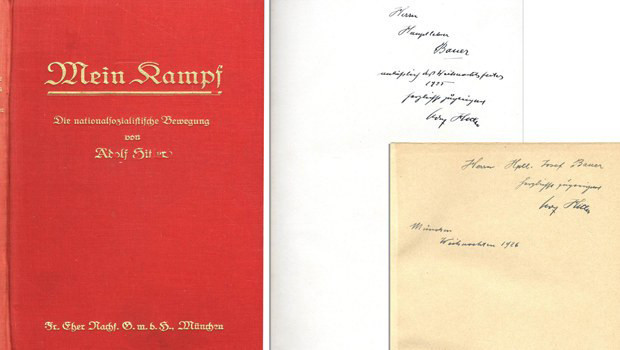 Mein Kampf
Die nationalsozialistische Bewegung
von
Adolf Hitler
Fr. Eher Nachf. G. m. b. H., München
Herrn
Hauptlehrer
Bauer
anläßlich des Weihnachtsfestes
1925
herzlichst zugeeignet
Adolf Hitler
Herrn Hptl. Josef Bauer
herzlichst zugeeignet
Adolf Hitler
München
Weihnachten 1926